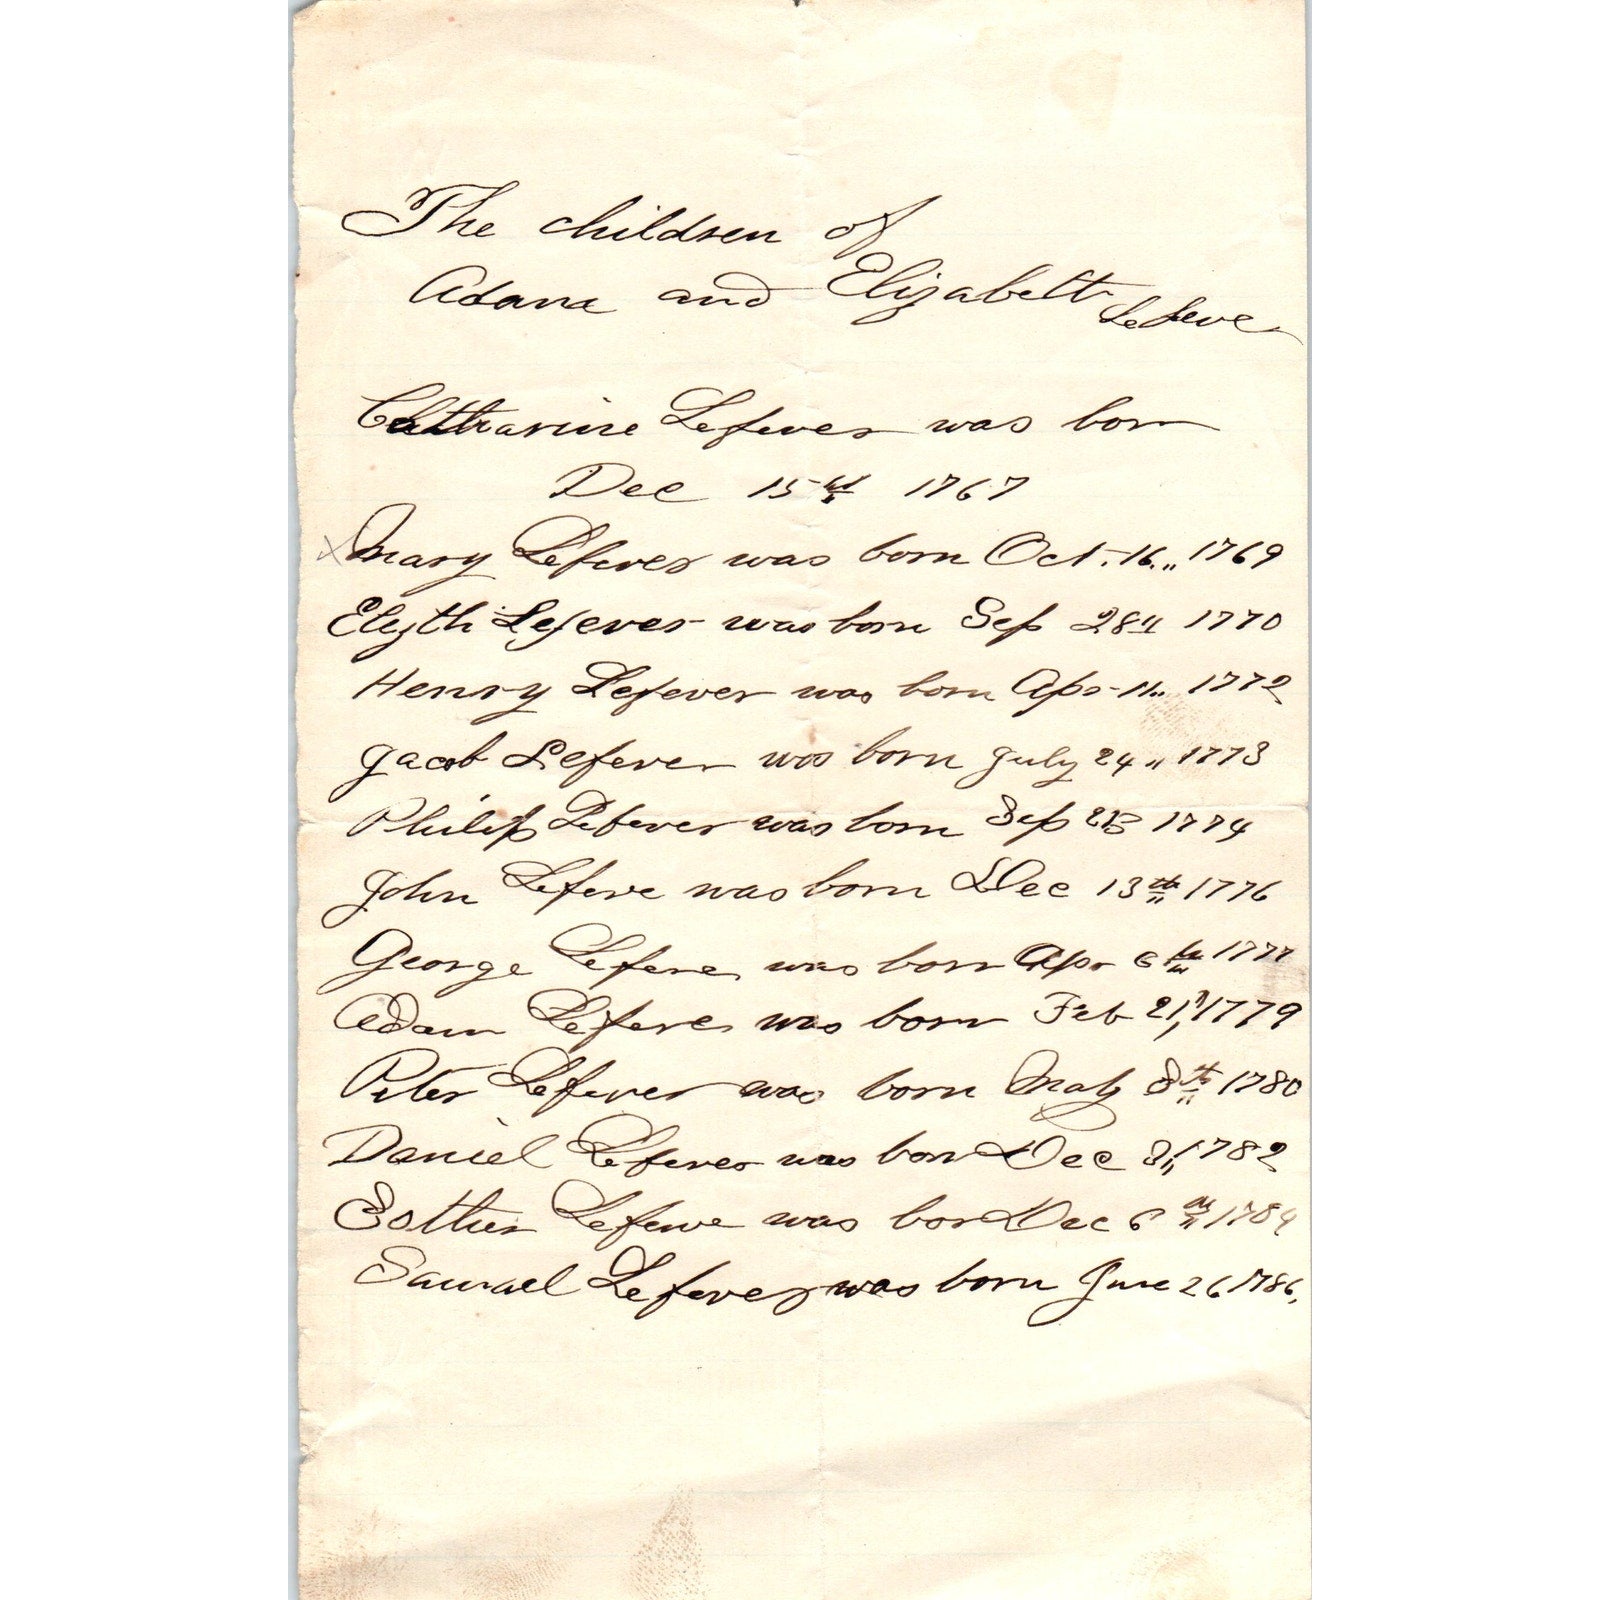 The children of
Adam and Elizabeth Lefeve
Catharine Lefever was born
Dec 15th 1767
Mary Lefever was born Oct. 16.,, 1769
Elizth Lefever was born Sep 28th 1770
Henry Lefever was born Apr 11,, 1772
Jacob Lefever was born July 24,, 1773
Philip Lefever was born Sep 1774
John Lefeve was born Dec 13th 1776
George Lefeve was born Apr 6th 1777
Adam Lefeve was born Feb 21, 1779
Peter Lefever was born May 8th 1780
Daniel Lefever was born Dec 8,, 1782
Esther Lefeve was born Dec 6th 1784
Samuel Lefever was born June 26 1786.